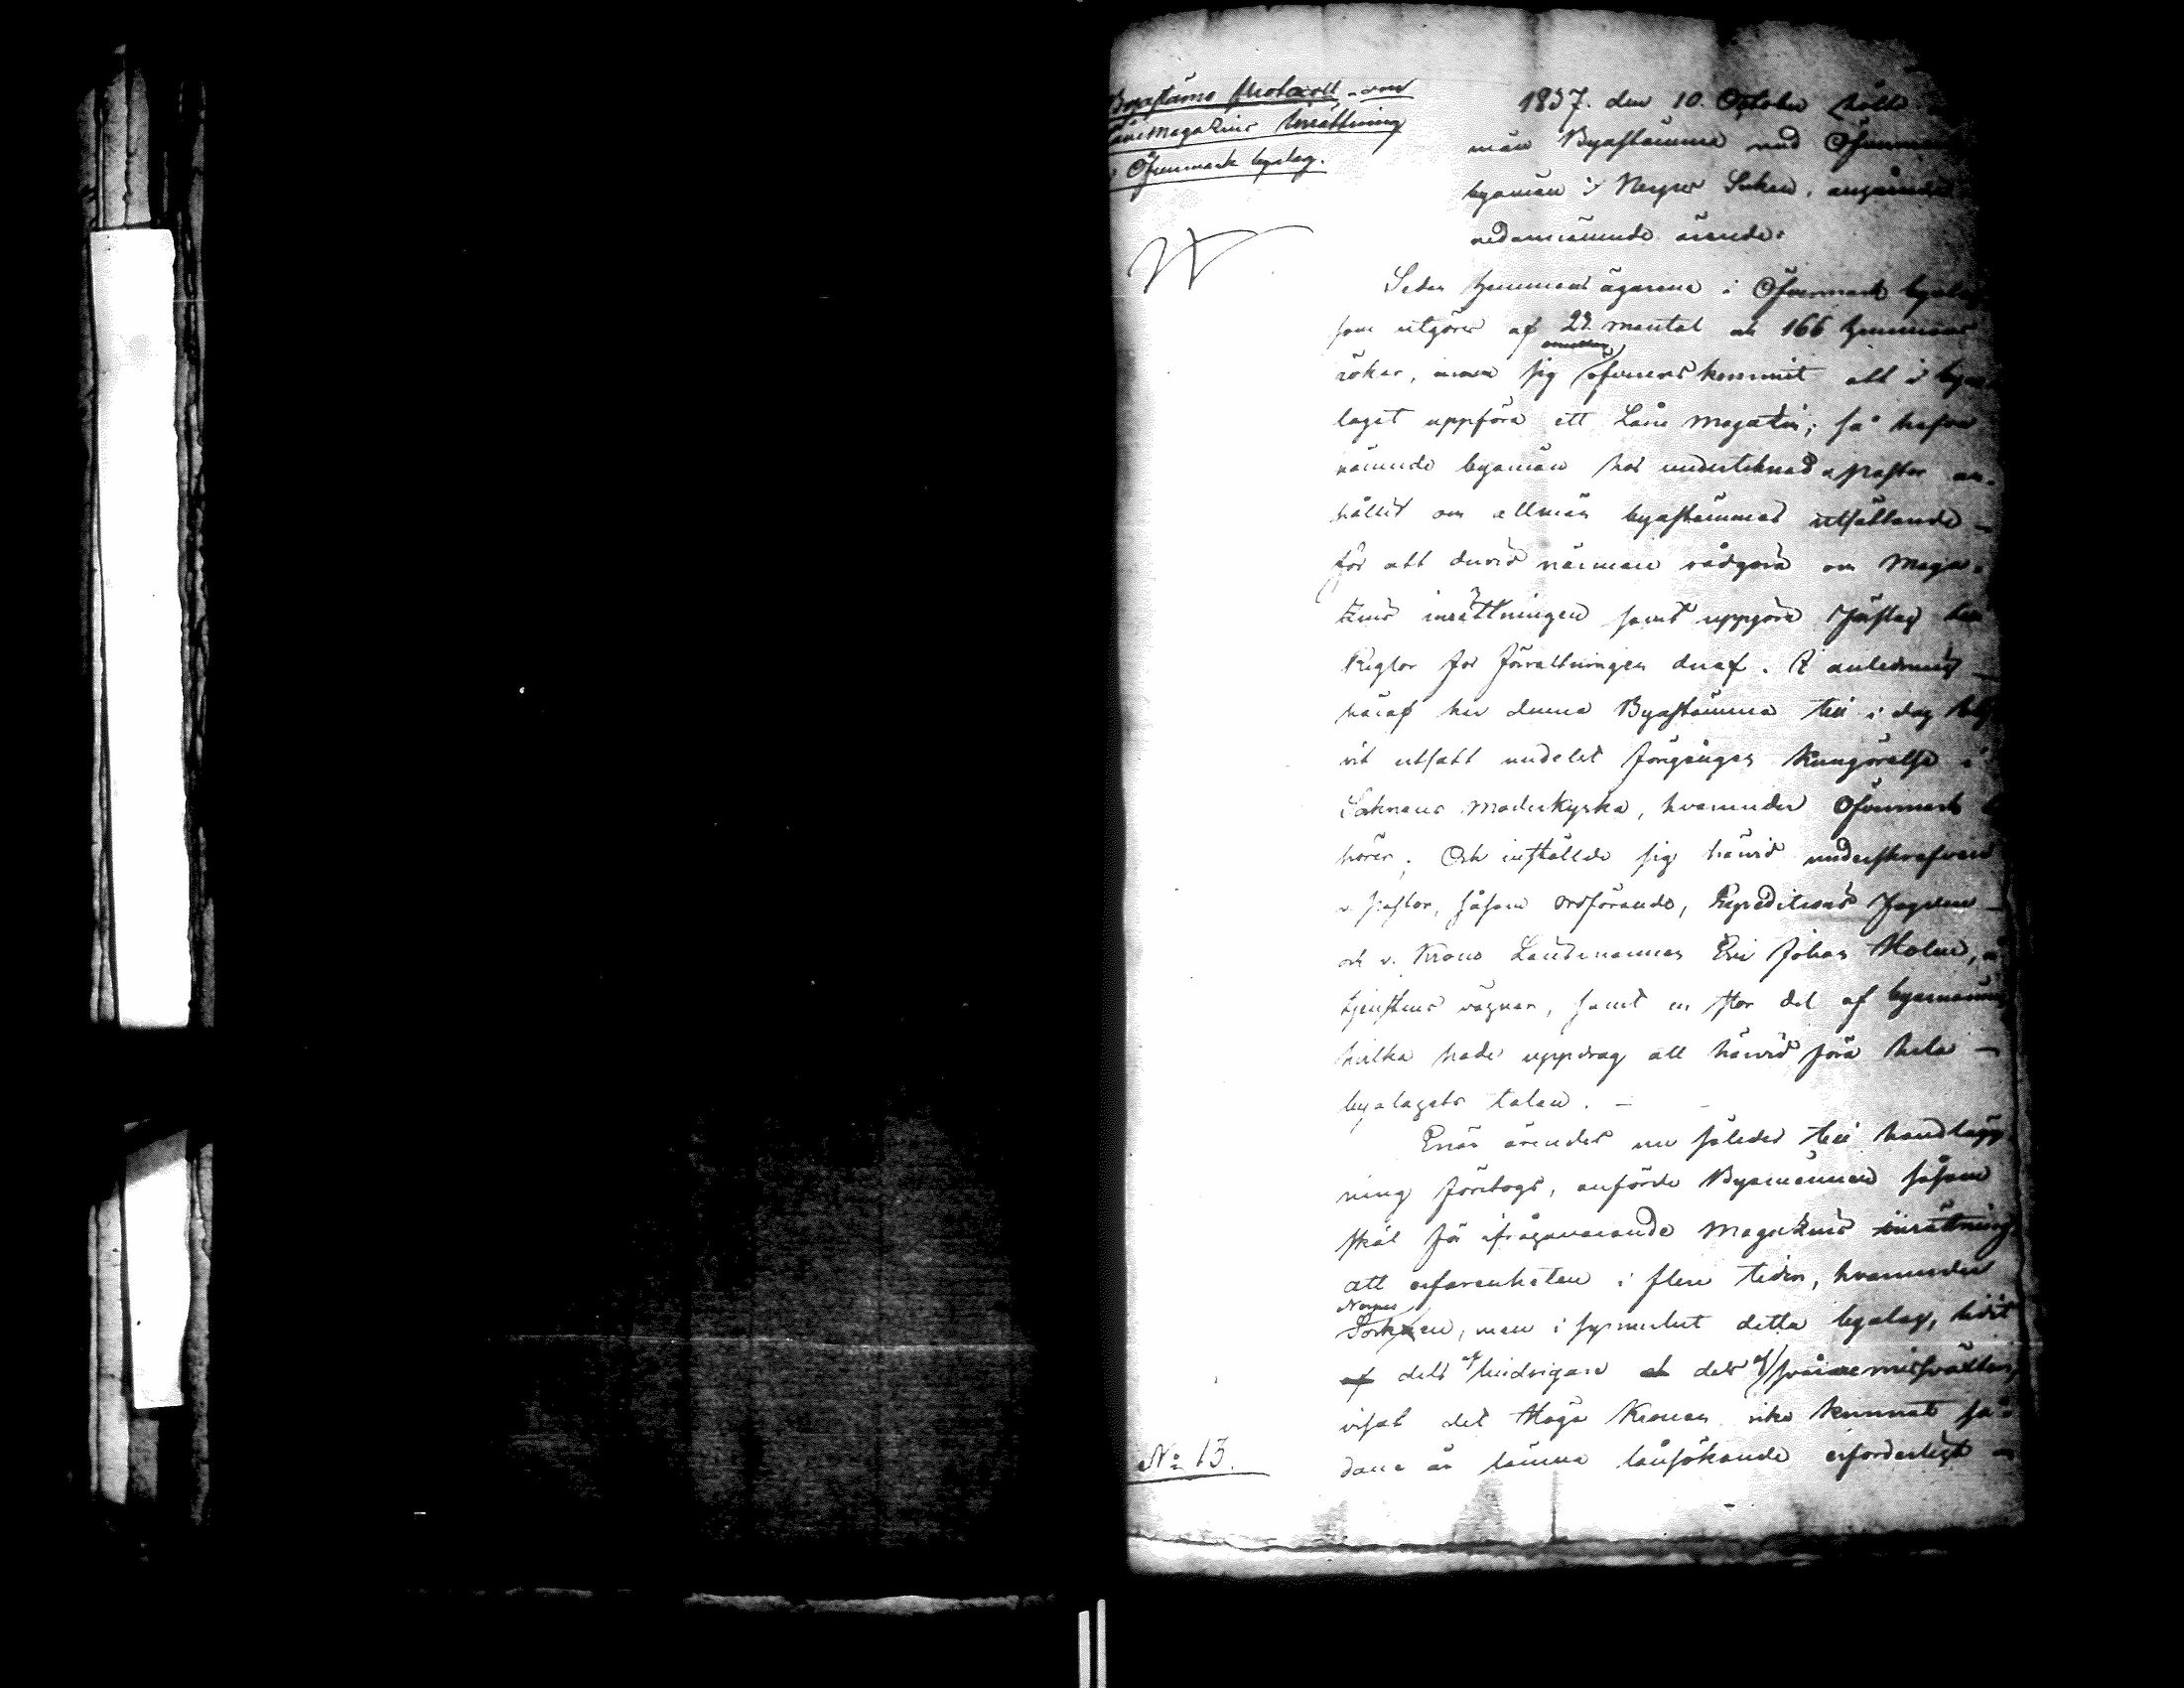 Byastämo Protocoll, om
Låne Magazins Inrättning
i Öfvermark byalag.
1837. den 10. October hölls
män Byastämma med Öfvermark
byamän i Nerpes Soken, angående
nedannämnde ärende:
Sedan Hemmans ägarene i Öfvermark byalag
som utgöres af 22 mantal och 166 Hemmans
rökar, inom sig öfverenskommit att i bya
laget uppföra ett Låne Magazin; så hafva
nämnde byamän hos undertecknad v Pastor an-
hållit om allmän byastämmas utsättande
för att dervid närmare rådgöra om Maga-
zins inrättningen samt uppgöra förslag till
Reglor for förvaltningen deraf. I anledning
häraf har denna Byastämma till i dag blif
vit utsatt medelst föregången kungörelse i
Soknens Moderkyrka, hvarunder Öfvermark
hörer; Och inställde sig härvid underskrefven
v. Pastor, såsom ordförande, Expeditions Fogden
och v. Krono Länsmannen Eric Johan Holm, å
tjenstens vägnar, samt en stor del af byamännen
hvilka hade uppdrag att härvid föra hela
byalagets talan.
Enär ärendet nu således till handlägg
ning företogs, anförde Byamännen såsom
skäl för ifrågavarande Magazins inrättning
att erfarenheten i flere tider, hvarunder
Nerpes
Soknen, men i synnerhet detta byalag, lidit
af dels af lindrigare och dels af svårare missväxter,
visat det Höga Kronan icke kunnat så-
dane år lämna lånsökande erforderligt
No 13.